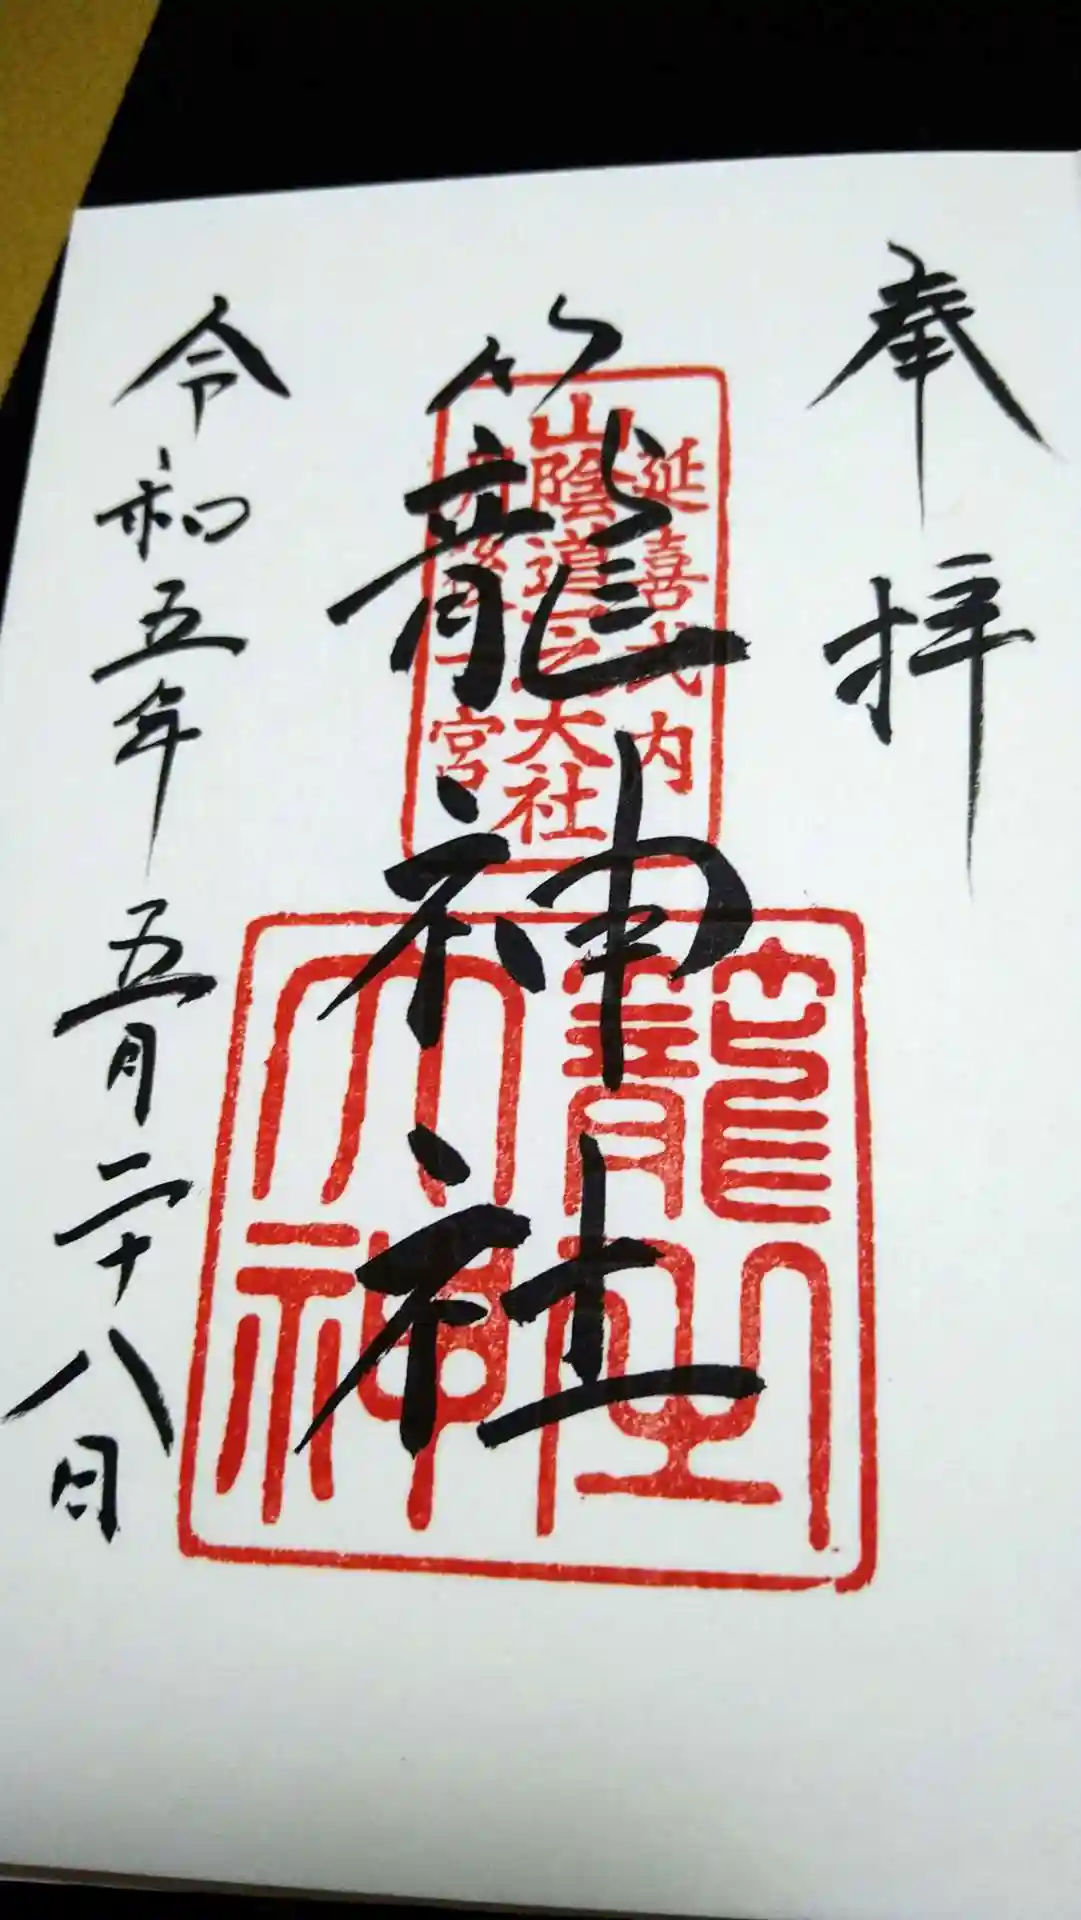 奉拝
籠神社
延喜式内
山陰道一之大社
丹後一宮
籠之大神
令和五年五月二十八日